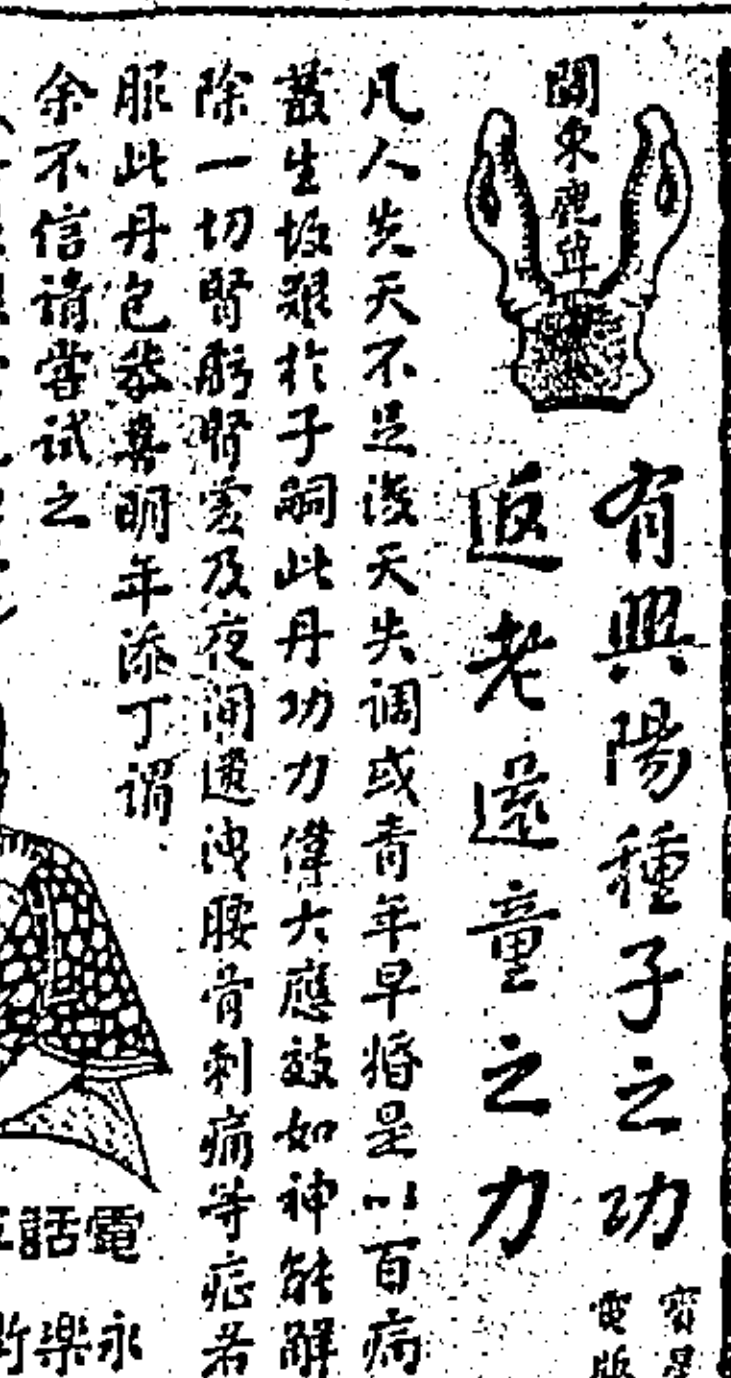 關東鹿茸
有興陽種子之功
返老還童之力
凡人先天不足後天失调或青年早婚是以百病
叢生故艱於子嗣此丹功力偉大應效如神能解
除一切腎虧腎寒及夜间遺洩腰骨刺痛等症若
服此丹包恭喜明年添丁谓
余不信請嘗试之
電話
永樂街
電版